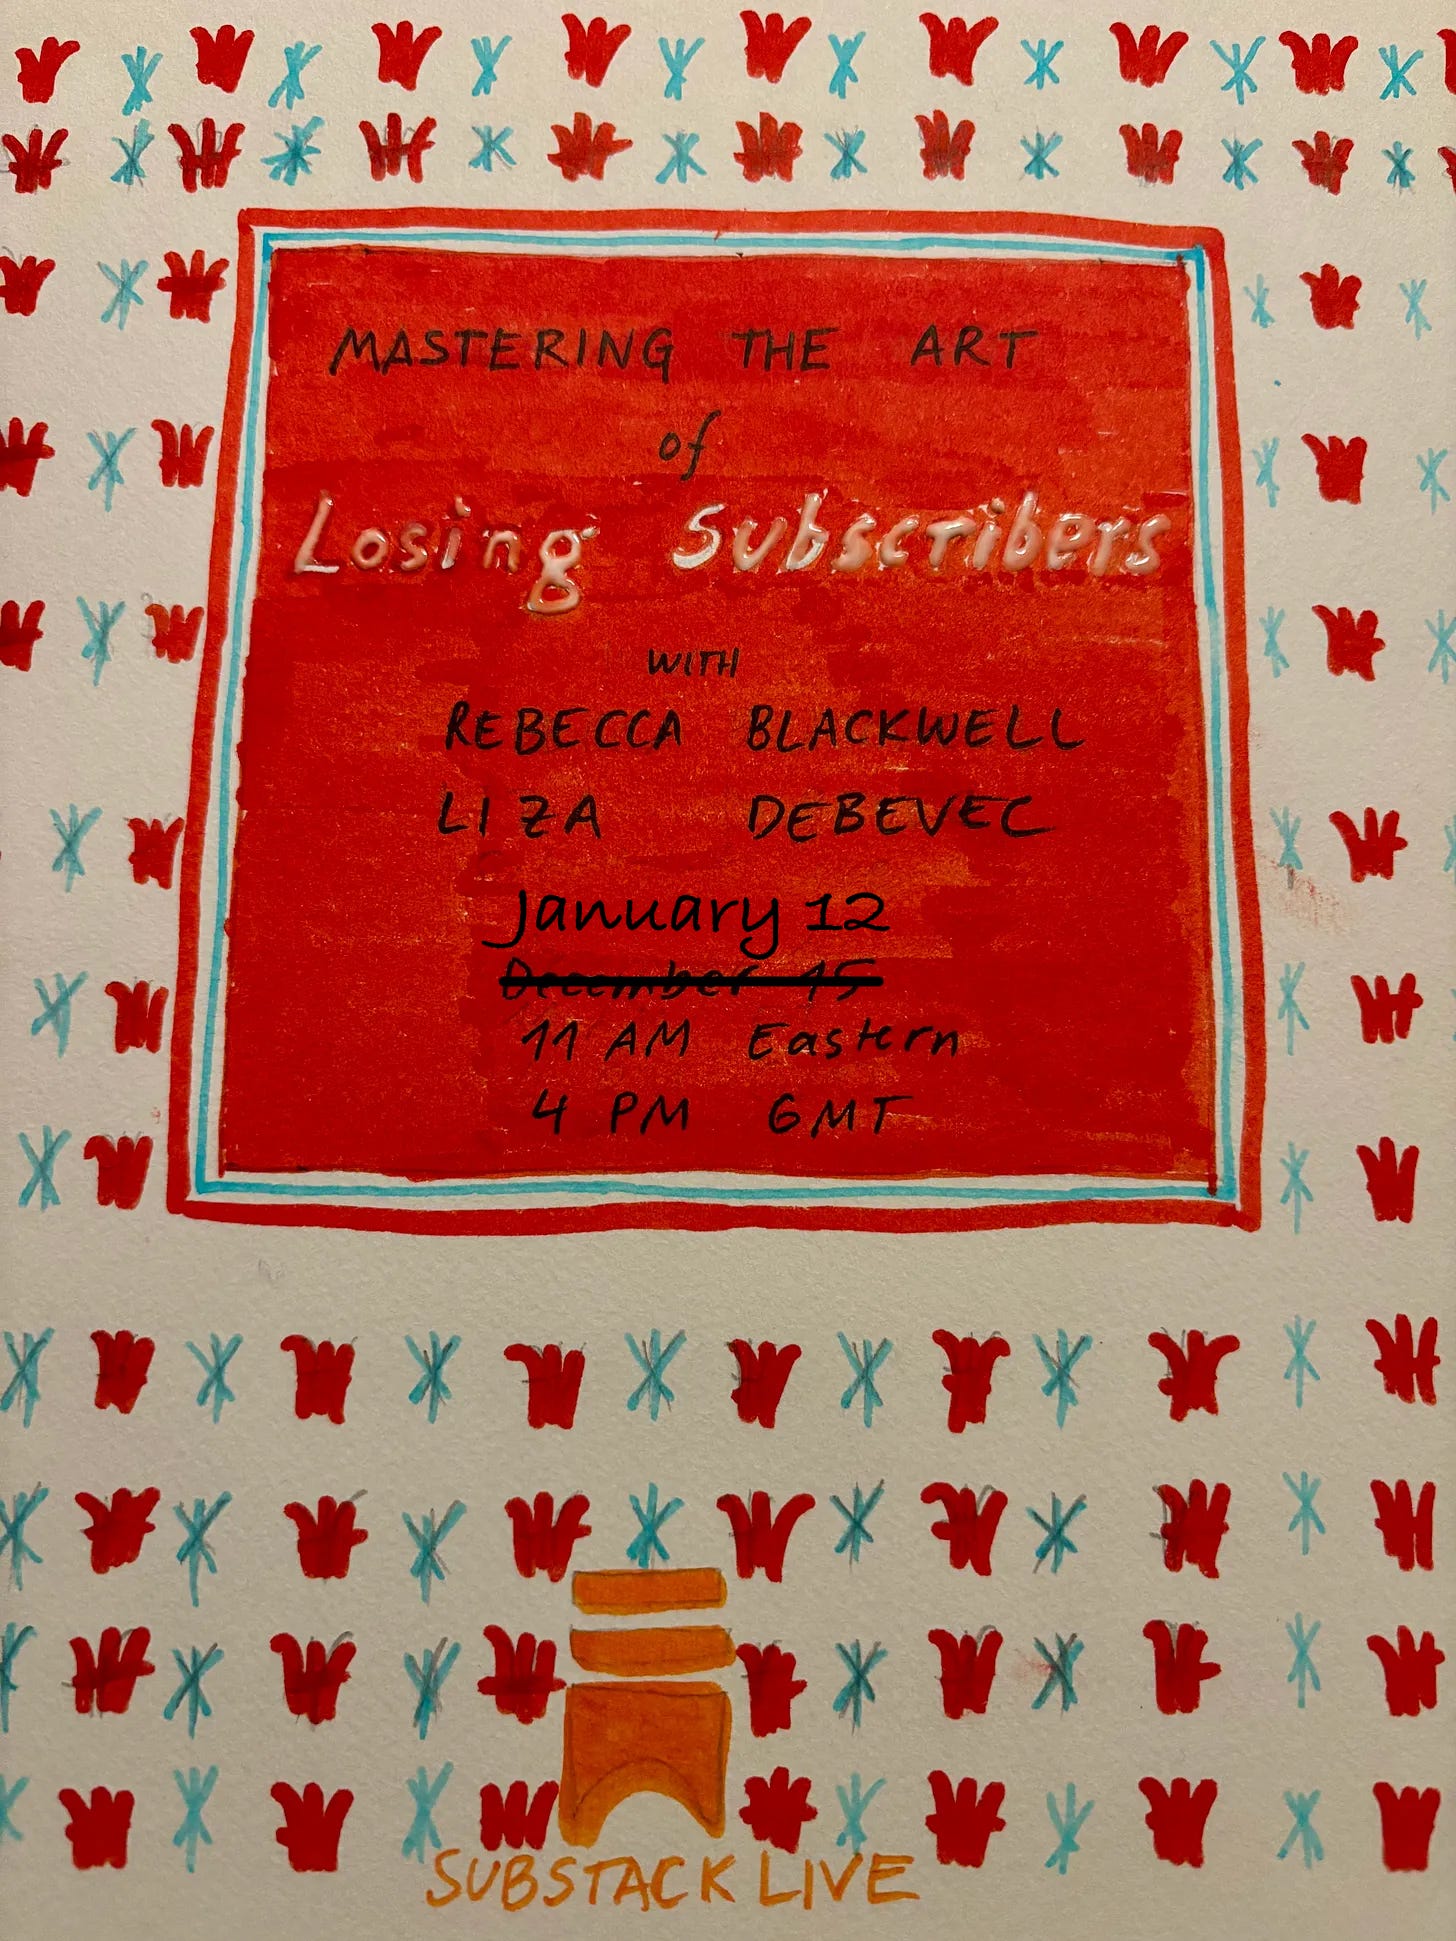 MASTERING THE ART
of
Losing Subscribers
WITH
REBECCA BLACKWELL
LIZA DEBEVEC
January 12
December 15
11 AM Eastern
4 PM GMT
SUBSTACK LIVE